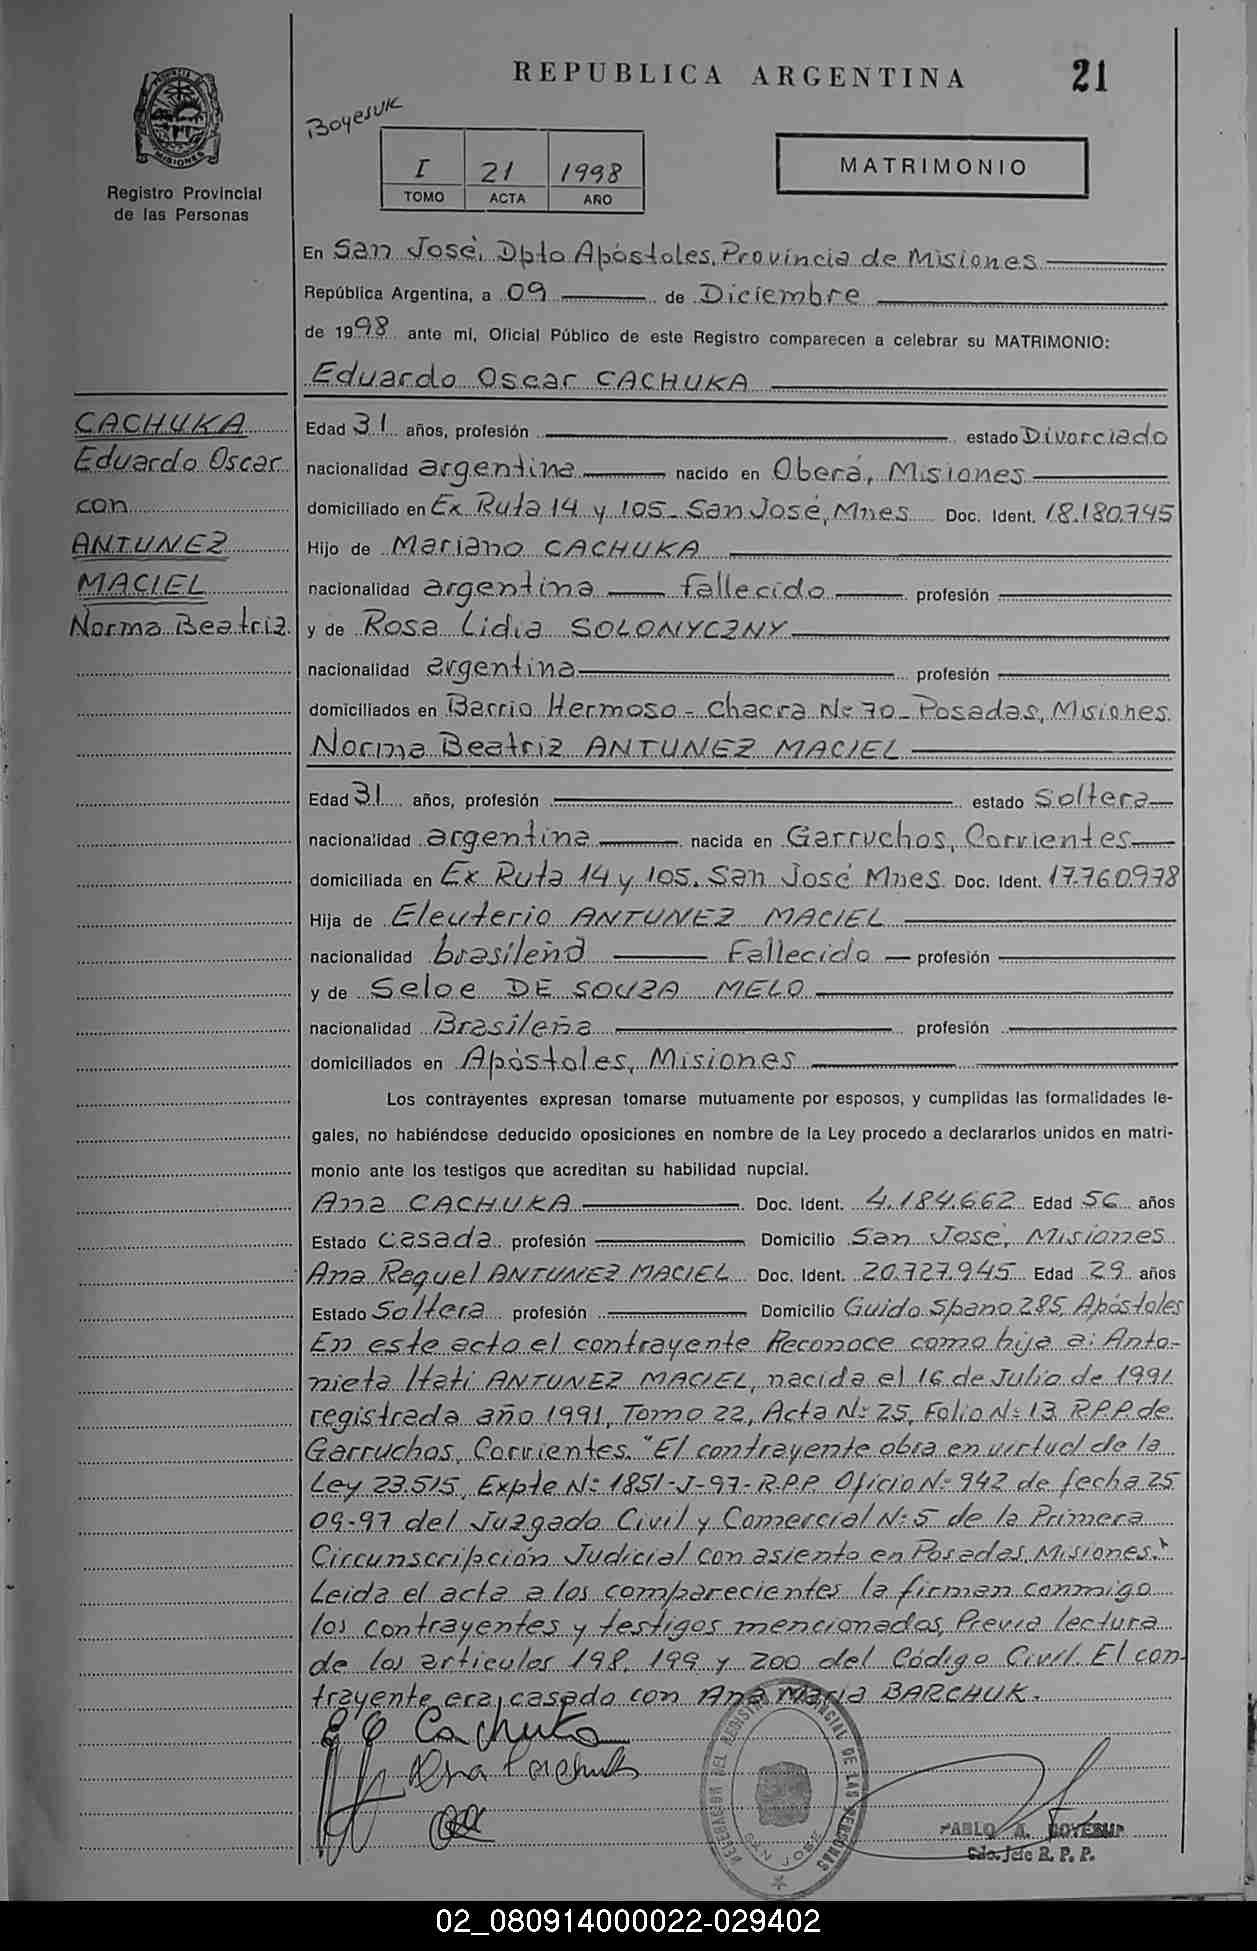 REPUBLICA ARGENTINA 21
Boyesuk
PROVINCIA DE MISIONES
Registro Provincial
de las Personas
I 21 1998
TOMO ACTA AÑO
MATRIMONIO
En San José, Dpto Apóstoles, Provincia de Misiones
República Argentina, a 09 de Diciembre
de 1998 ante mí, Oficial Público de este Registro comparecen a celebrar su MATRIMONIO:
Eduardo Oscar CACHUKA
CACHUKA
Eduardo Oscar
con
ANTUNEZ
MACIEL
Norma Beatriz
Edad 31 años, profesión estado Divorciado
nacionalidad argentina nacido en Oberá, Misiones
domiciliado en Ex Ruta 14 y 105 - San José, Mnes Doc. Ident. 18.180.745
Hijo de Mariano CACHUKA
nacionalidad argentina fallecido profesión
y de Rosa Lidia SOLONYCZNY
nacionalidad argentina profesión
domiciliados en Barrio Hermoso - Chacra Nº 70 - Posadas, Misiones
Norma Beatriz ANTUNEZ MACIEL
Edad 31 años, profesión estado Soltera
nacionalidad argentina nacida en Garruchos, Corrientes
domiciliada en Ex Ruta 14 y 105. San José Mnes Doc. Ident. 17.760.978
Hija de Eleuterio ANTUNEZ MACIEL
nacionalidad brasileña Fallecido profesión
y de Seloe DE SOUZA MELO
nacionalidad Brasileña profesión
domiciliados en Apóstoles, Misiones
Los contrayentes expresan tomarse mutuamente por esposos, y cumplidas las formalidades le-
gales, no habiéndose deducido oposiciones en nombre de la Ley procedo a declararlos unidos en matri-
monio ante los testigos que acreditan su habilidad nupcial.
Ana CACHUKA Doc. Ident. 4.184.662 Edad 56 años
Estado Casada profesión Domicilio San José, Misiones
Ana Raquel ANTUNEZ MACIEL Doc. Ident. 20.727.945 Edad 29 años
Estado Soltera profesión Domicilio Guido Spano 285, Apóstoles
En este acto el contrayente Reconoce como hija a: Anto-
nieta Itatí ANTUNEZ MACIEL, nacida el 16 de Julio de 1991
registrada año 1991, Tomo 22, Acta Nº 25, Folio Nº 13 R.P.P. de
Garruchos, Corrientes. "El contrayente obra en virtud de la
Ley 23.515, Expte Nº 1851-J-97-R.P.P. Oficio Nº 942 de fecha 25
09-97 del Juzgado Civil y Comercial Nº 5 de la Primera
Circunscripción Judicial con asiento en Posadas, Misiones."
Leída el acta a los comparecientes la firman conmigo
los contrayentes y testigos mencionados, Previa lectura
de los artículos 198, 199 y 200 del Código Civil. El con-
trayente era casado con Ana María BARCHUK.
E O Cachuka
Ana Cachuka
DELEGACION DEL REGISTRO PROVINCIAL DE LAS PERSONAS
SAN JOSE
PABLO A. BOYESUK
Gdo. Jefe R. P. P.
02_080914000022-029402